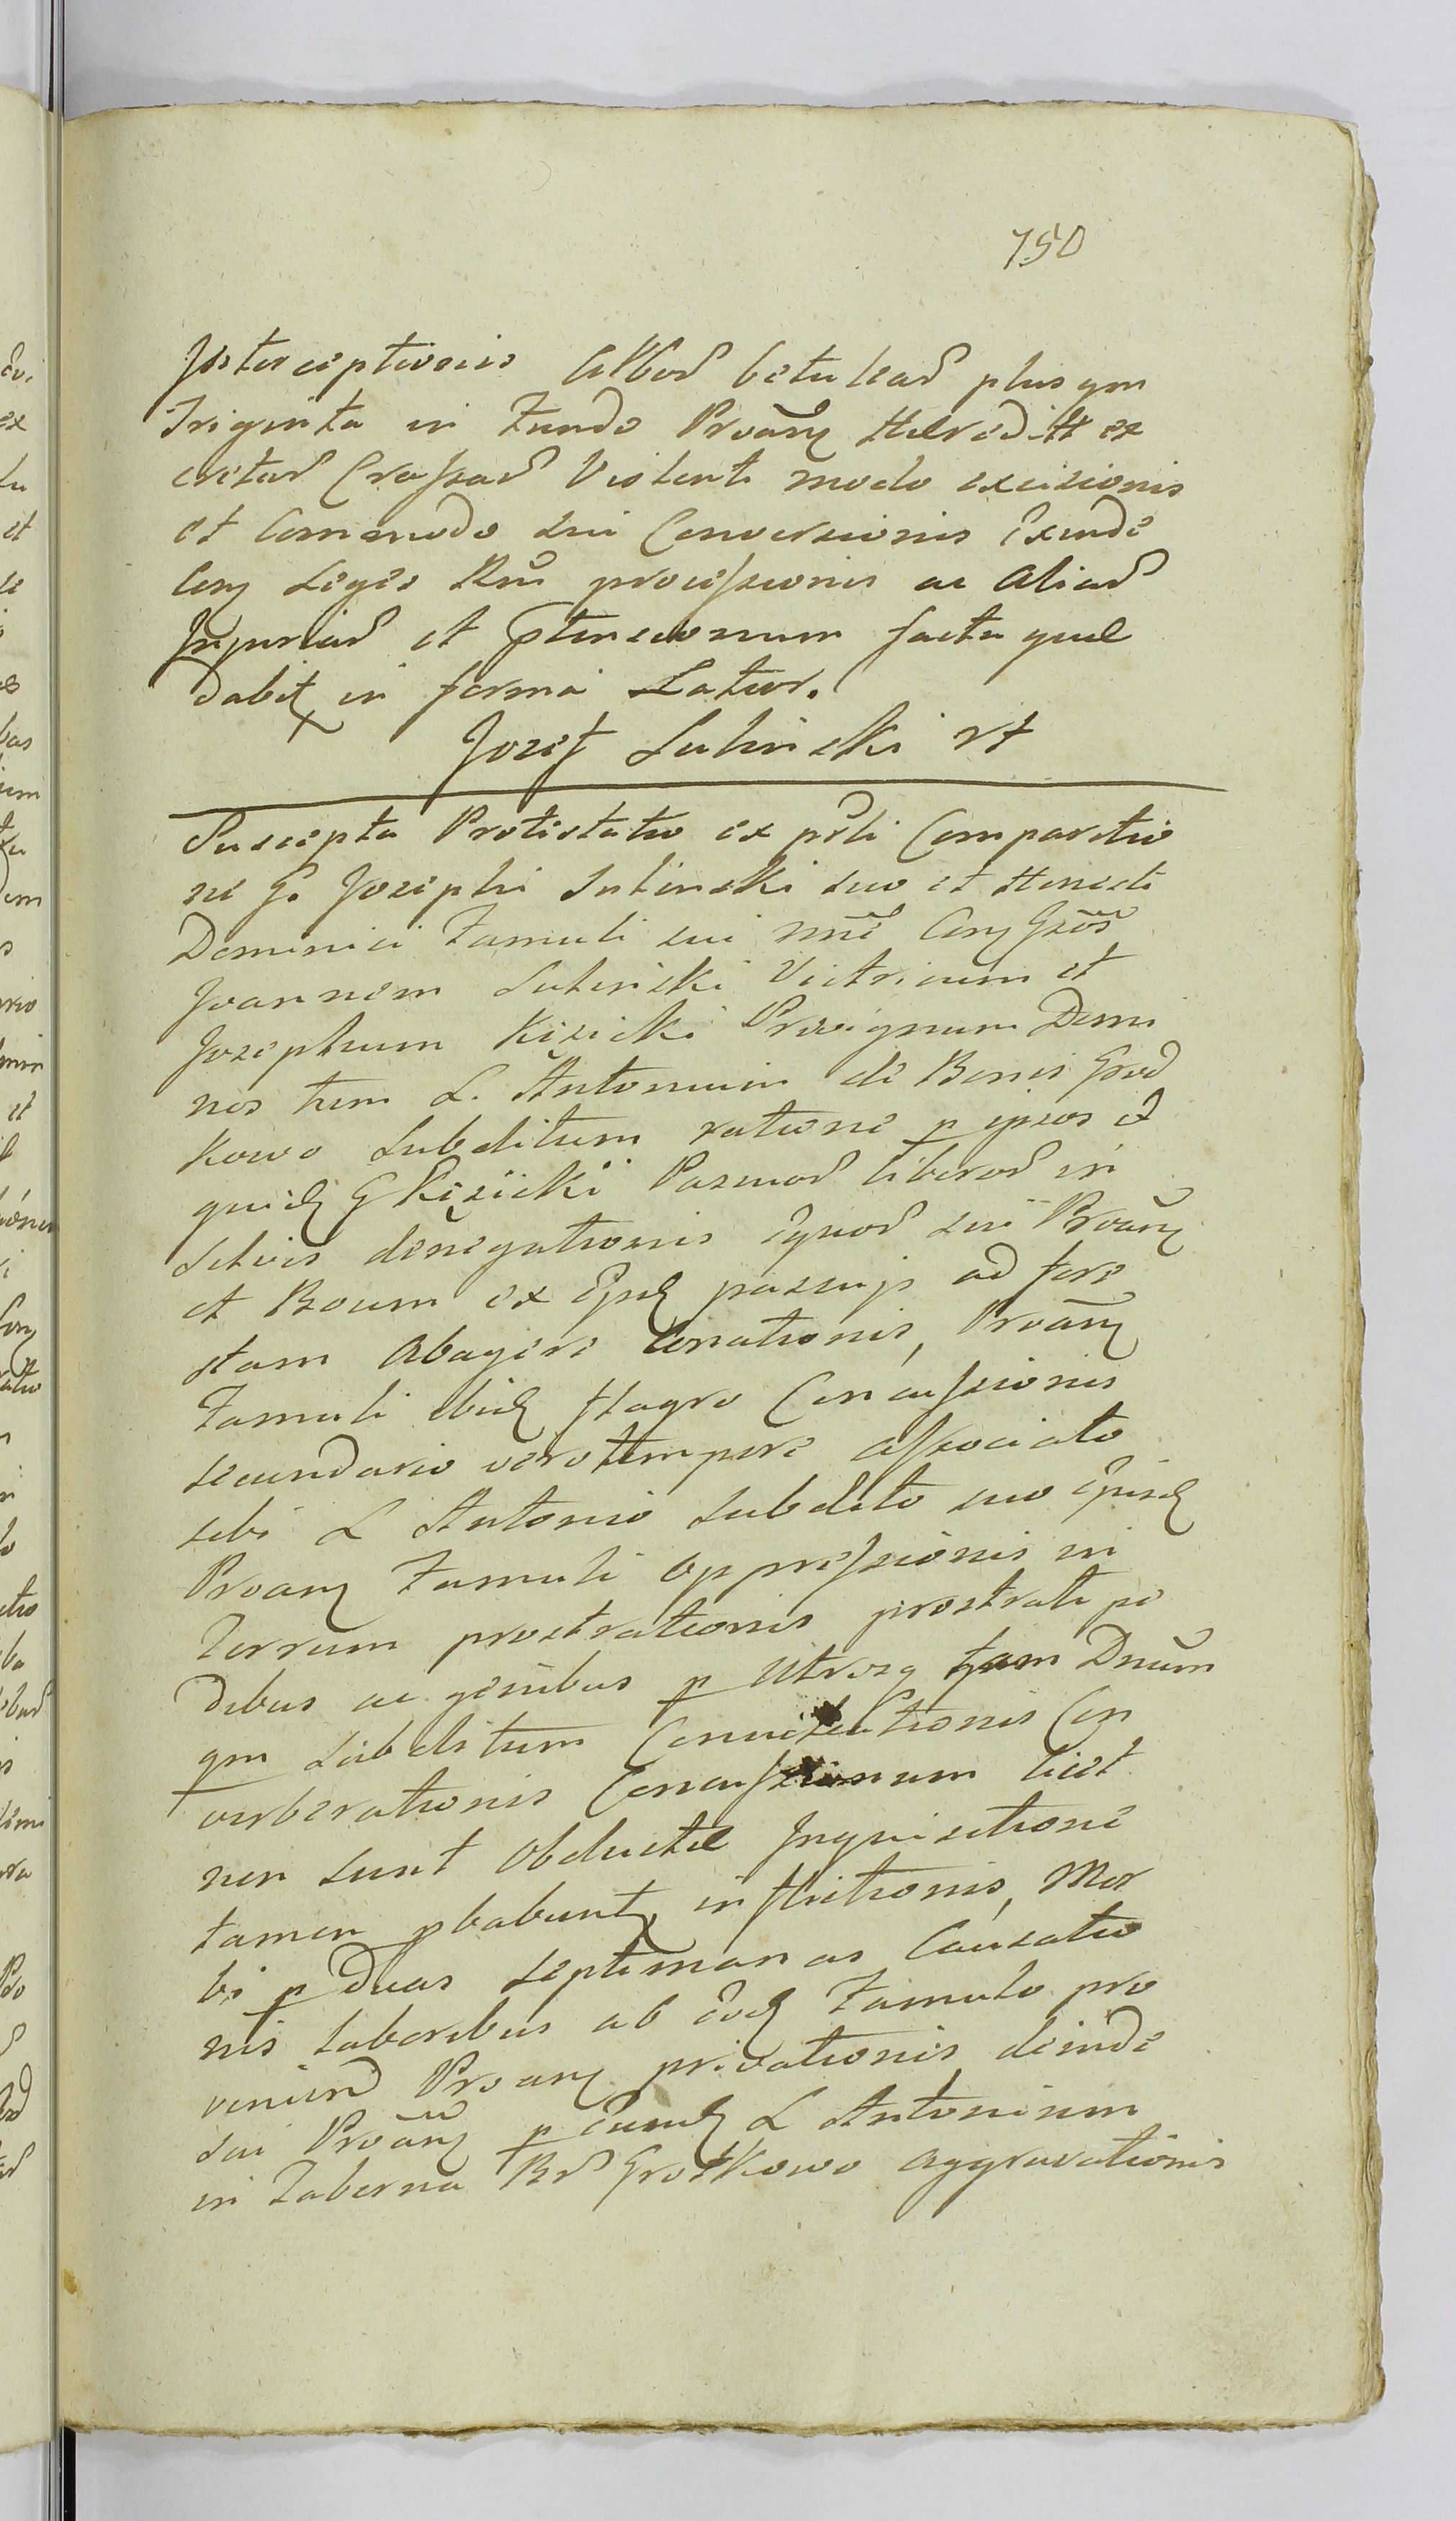 750
Interceptionis Alboꝝ betuleaꝝ plus qm
Triginta in Fundo Proãnꝫ Hæredit ex
cretaꝝ Crassaꝝ Violenti modo excisionis
et Commodo sui Conversionis Exinde
Conꝫ Leges Rni processionis ac Aliaꝝ
Injuriaꝝ et ptensionum factu quæ
dabitꝫ in forma Latior.
Jozef Lutinski
Suscepta Protestatio ex psti Comparitio
ne G. Josephi Lutinski suo et Honesti
Dominici Famuli sui nnẽ Conꝫ Gsos
Joannem Lutinski Victricum et
Josephum Kisicki Privignum Domi
nos tum L. Antonium de Bonis Grod
kowo Subditum ratione p ipsos et
quidꝫ G Kisicki Pascuoꝝ liberoꝝ in
Silvis denegationis Equoꝝ sui Proãnꝫ
et Boum ex Ejusdꝫ pascuis ad fore
stam Abagere Conationis, Proãnꝫ
Famuli ibidꝫ flagro Concussionis
secundario vero tempore associato
sibi L Antonio Subdito suo Ejusdꝫ
Proanꝫ Famuli Oppressionis in
Terram prostrationis prostrati pe
dibus ac genibus p Utrosq tam Dnum
qm Subditum Conculcationis Con
verberationis Concussionum licet
non sunt Obductæ Inquisitione
tamen pbabuntꝫ inflictionis, Mor
bi p Duas Septimanas Causatio
nis laboribus ab Eodꝫ Famulo pro
venienꝰ Proanꝫ privationis deinde
sui Proãnꝫ p Eumdꝫ L Antonium
in Taberna Bꝝ Grodkowo aggravationis